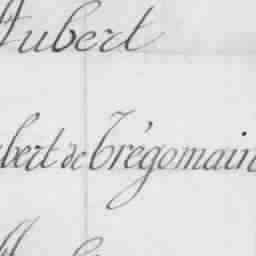 Aubert
bert de Trégomain